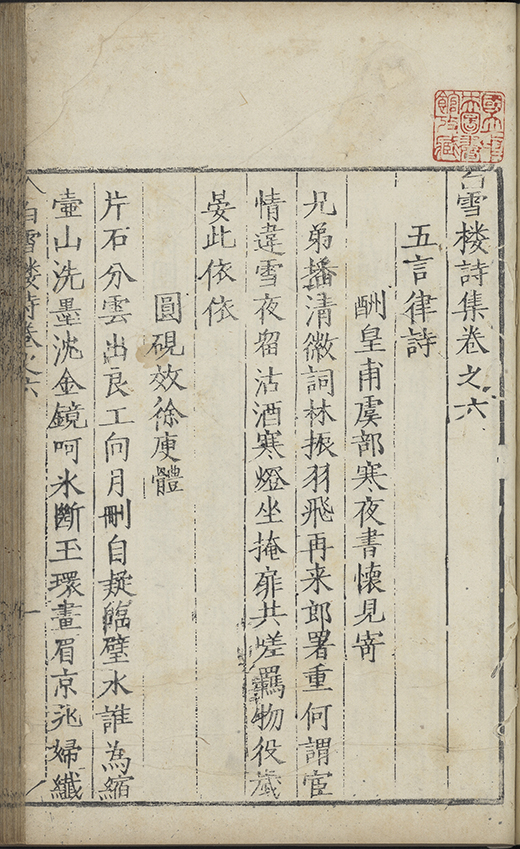 國立中
央圖書
館收藏
白雪樓詩集卷之六
五言律詩
酬皇甫虞部寒夜書懷見寄
兄弟播清徽詞林振羽飛再来郎署重何謂宦
情違雪夜留沽酒寒燈坐掩扉共嗟羈物役歲
晏此依依
圓硯效徐庾體
片石分雲出良工向月刪自疑臨璧水誰為縮
壺山洗墨沈金鏡呵氷斷玉環畫眉京兆婦纖
白雪樓詩卷之六
一